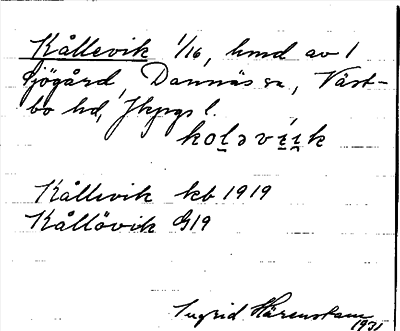 Kållevik 1/16, hmd av 1
Sjögård, Dannäs sn, Väst-
bo hd, Jkpgs l.
koləvik
Kållevik kb 1919
Kållövik G19
Ingrid Härenstam
1931